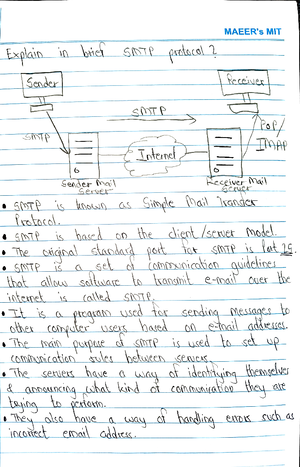 MAEER's MIT
Explain in brief SMTP protocol?
Sender
Receiver
SMTP
SMTP
POP/
IMAP
Internet
Sender Mail
Server
Receiver Mail
Server
• SMTP is known as Simple Mail Transfer
Protocol.
• SMTP is based on the client/server model.
• The original standard port for SMTP is Port 25.
• SMTP is a set of communication guidelines
that allow software to transmit e-mail over the
internet is called SMTP.
• It is a program used for sending messages to
other computer users based on e-mail addresses.
• The main purpose of SMTP is used to set up
communication rules between servers.
• The servers have a way of identifying themselves
& announcing what kind of communication they are
trying to perform.
• They also have a way of handling errors such as
incorrect email address.